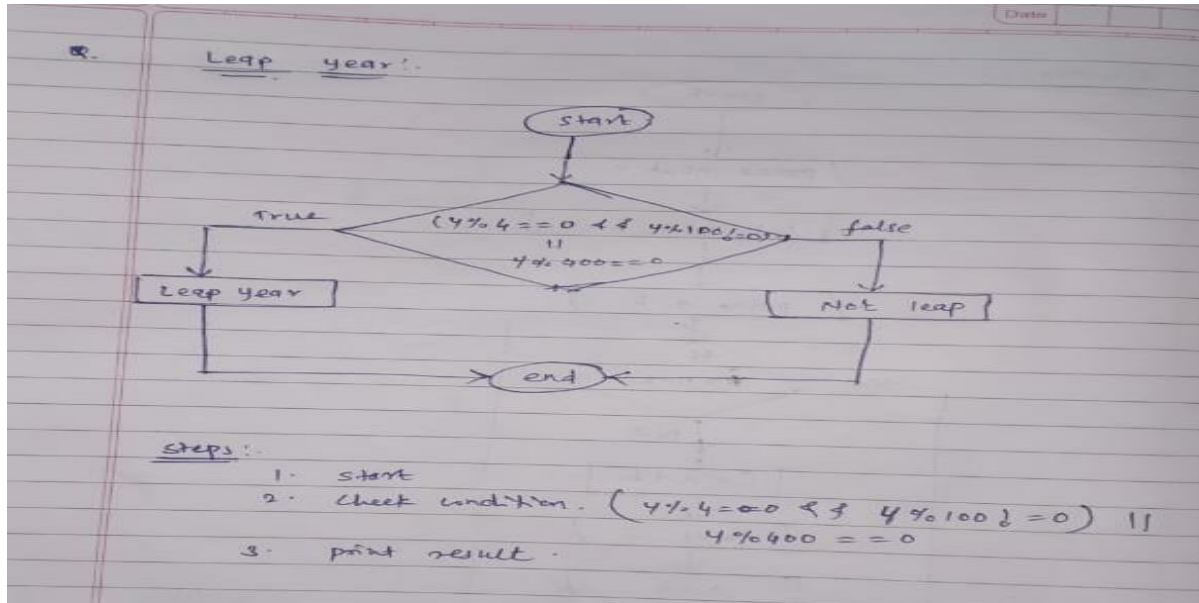 Date
Q. Leap year:.
start
True
(y%4==0 && y%100!=0)
||
y%400==0
false
Leap year
Not leap
end
steps:.
1. start
2. Check condition. (y%4==0 && y%100!=0) ||
y%400 == 0
3. print result.